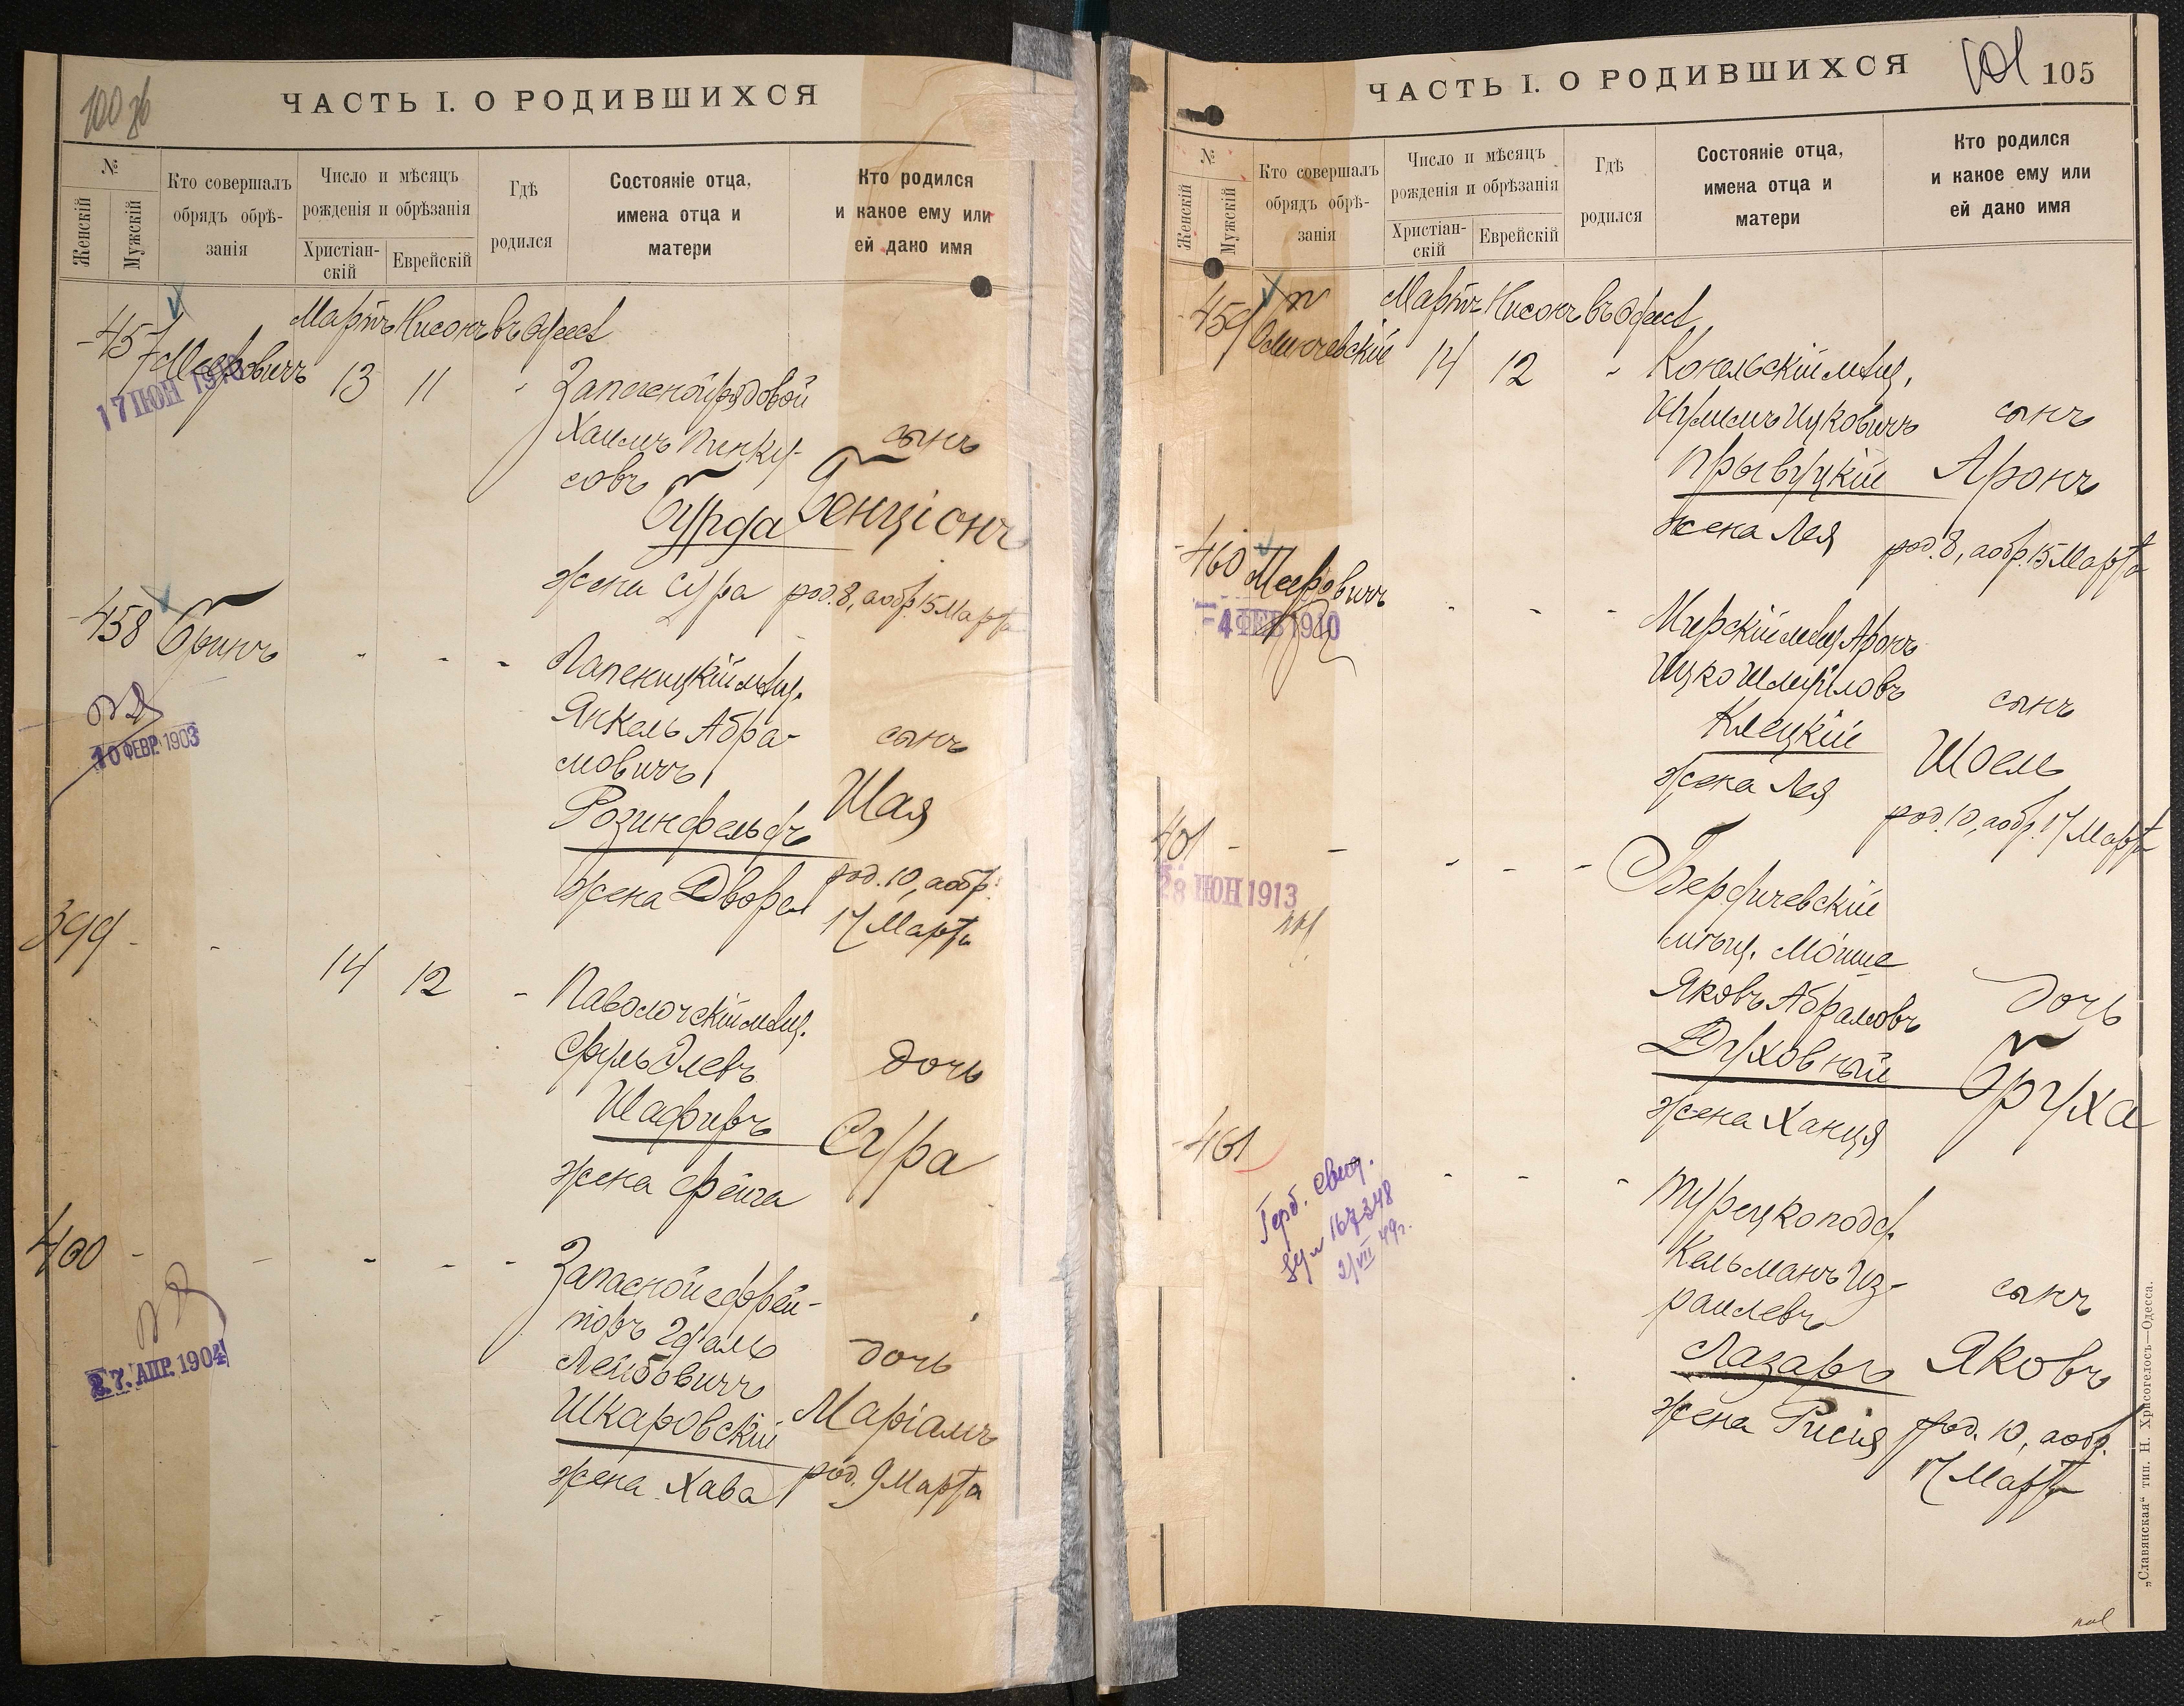 100 об
ЧАСТЬ I. О РОДИВШИХСЯ
№
Женскій
Мужскій
Кто совершалъ
обрядъ обрѣ-
занія
Число и мѣсяцъ
рожденія и обрѣзанія
Христіан-
скій
Еврейскій
Гдѣ
родился
Состояніе отца,
имена отца и
матери
Кто родился
и какое ему или
ей дано имя
Мартъ Нисонъ въ Одессѣ
457 Мееровичъ 13 11 Запасной рядовой
17 ІЮН 1910
Хаимъ Пинку-
совъ сынъ
Бурда Бенціонъ
жена Сура род. 8, а обр. 15 Марта
458 Бринъ - - - Лапеницкій мѣщ.
Янкель Абра-
мовичъ сынъ
10 ФЕВР. 1903
Розинфельдъ Шая
жена Двора род. 10, а обр.
17 Марта
399 - - 14 12 - Паволочскій мѣщ.
Сруль Элевъ дочь
Шафиръ Сура
жена Фейга
400 - - - - - Запасной ефрей-
торъ Эфаль
Лейбовичъ дочь
27 АПР. 1904
Шкаровскій Маріамъ
жена Хава род. 9 Марта
101 105
ЧАСТЬ I. О РОДИВШИХСЯ
№
Женскій
Мужскій
Кто совершалъ
обрядъ обрѣ-
занія
Число и мѣсяцъ
рожденія и обрѣзанія
Христіан-
скій
Еврейскій
Гдѣ
родился
Состояніе отца,
имена отца и
матери
Кто родился
и какое ему или
ей дано имя
Мартъ Нисонъ въ Одессѣ
459 14 12 - Конельскій мѣщ.
Ицковичъ сынъ
Прывуцкій Аронъ
жена Лея род. 8, а обр. 15 Марта
460 Мееровичъ - - - Мирскій мѣщ. Аронъ
-4 ФЕВ 1910
Ицко Шмуйловъ сынъ
Клецкій Шоель
жена Лея род. 10, а обр. 17 Марта
401 - - - - - Бердичевскій
28 ІЮН 1913
мѣщ. Мойше
Яковъ Абрамовъ дочь
Духовный Бруха
жена Ханця
461 - - - Турецкоподд.
Герб. свид.
167348
2/VII 49г.
Кельманъ Из-
раилевъ сынъ
Лазаръ Яковъ
жена Рися род. 10, а обр.
17 Марта
„Славянская“ тип. Н. Хрисогелосъ—Одесса.